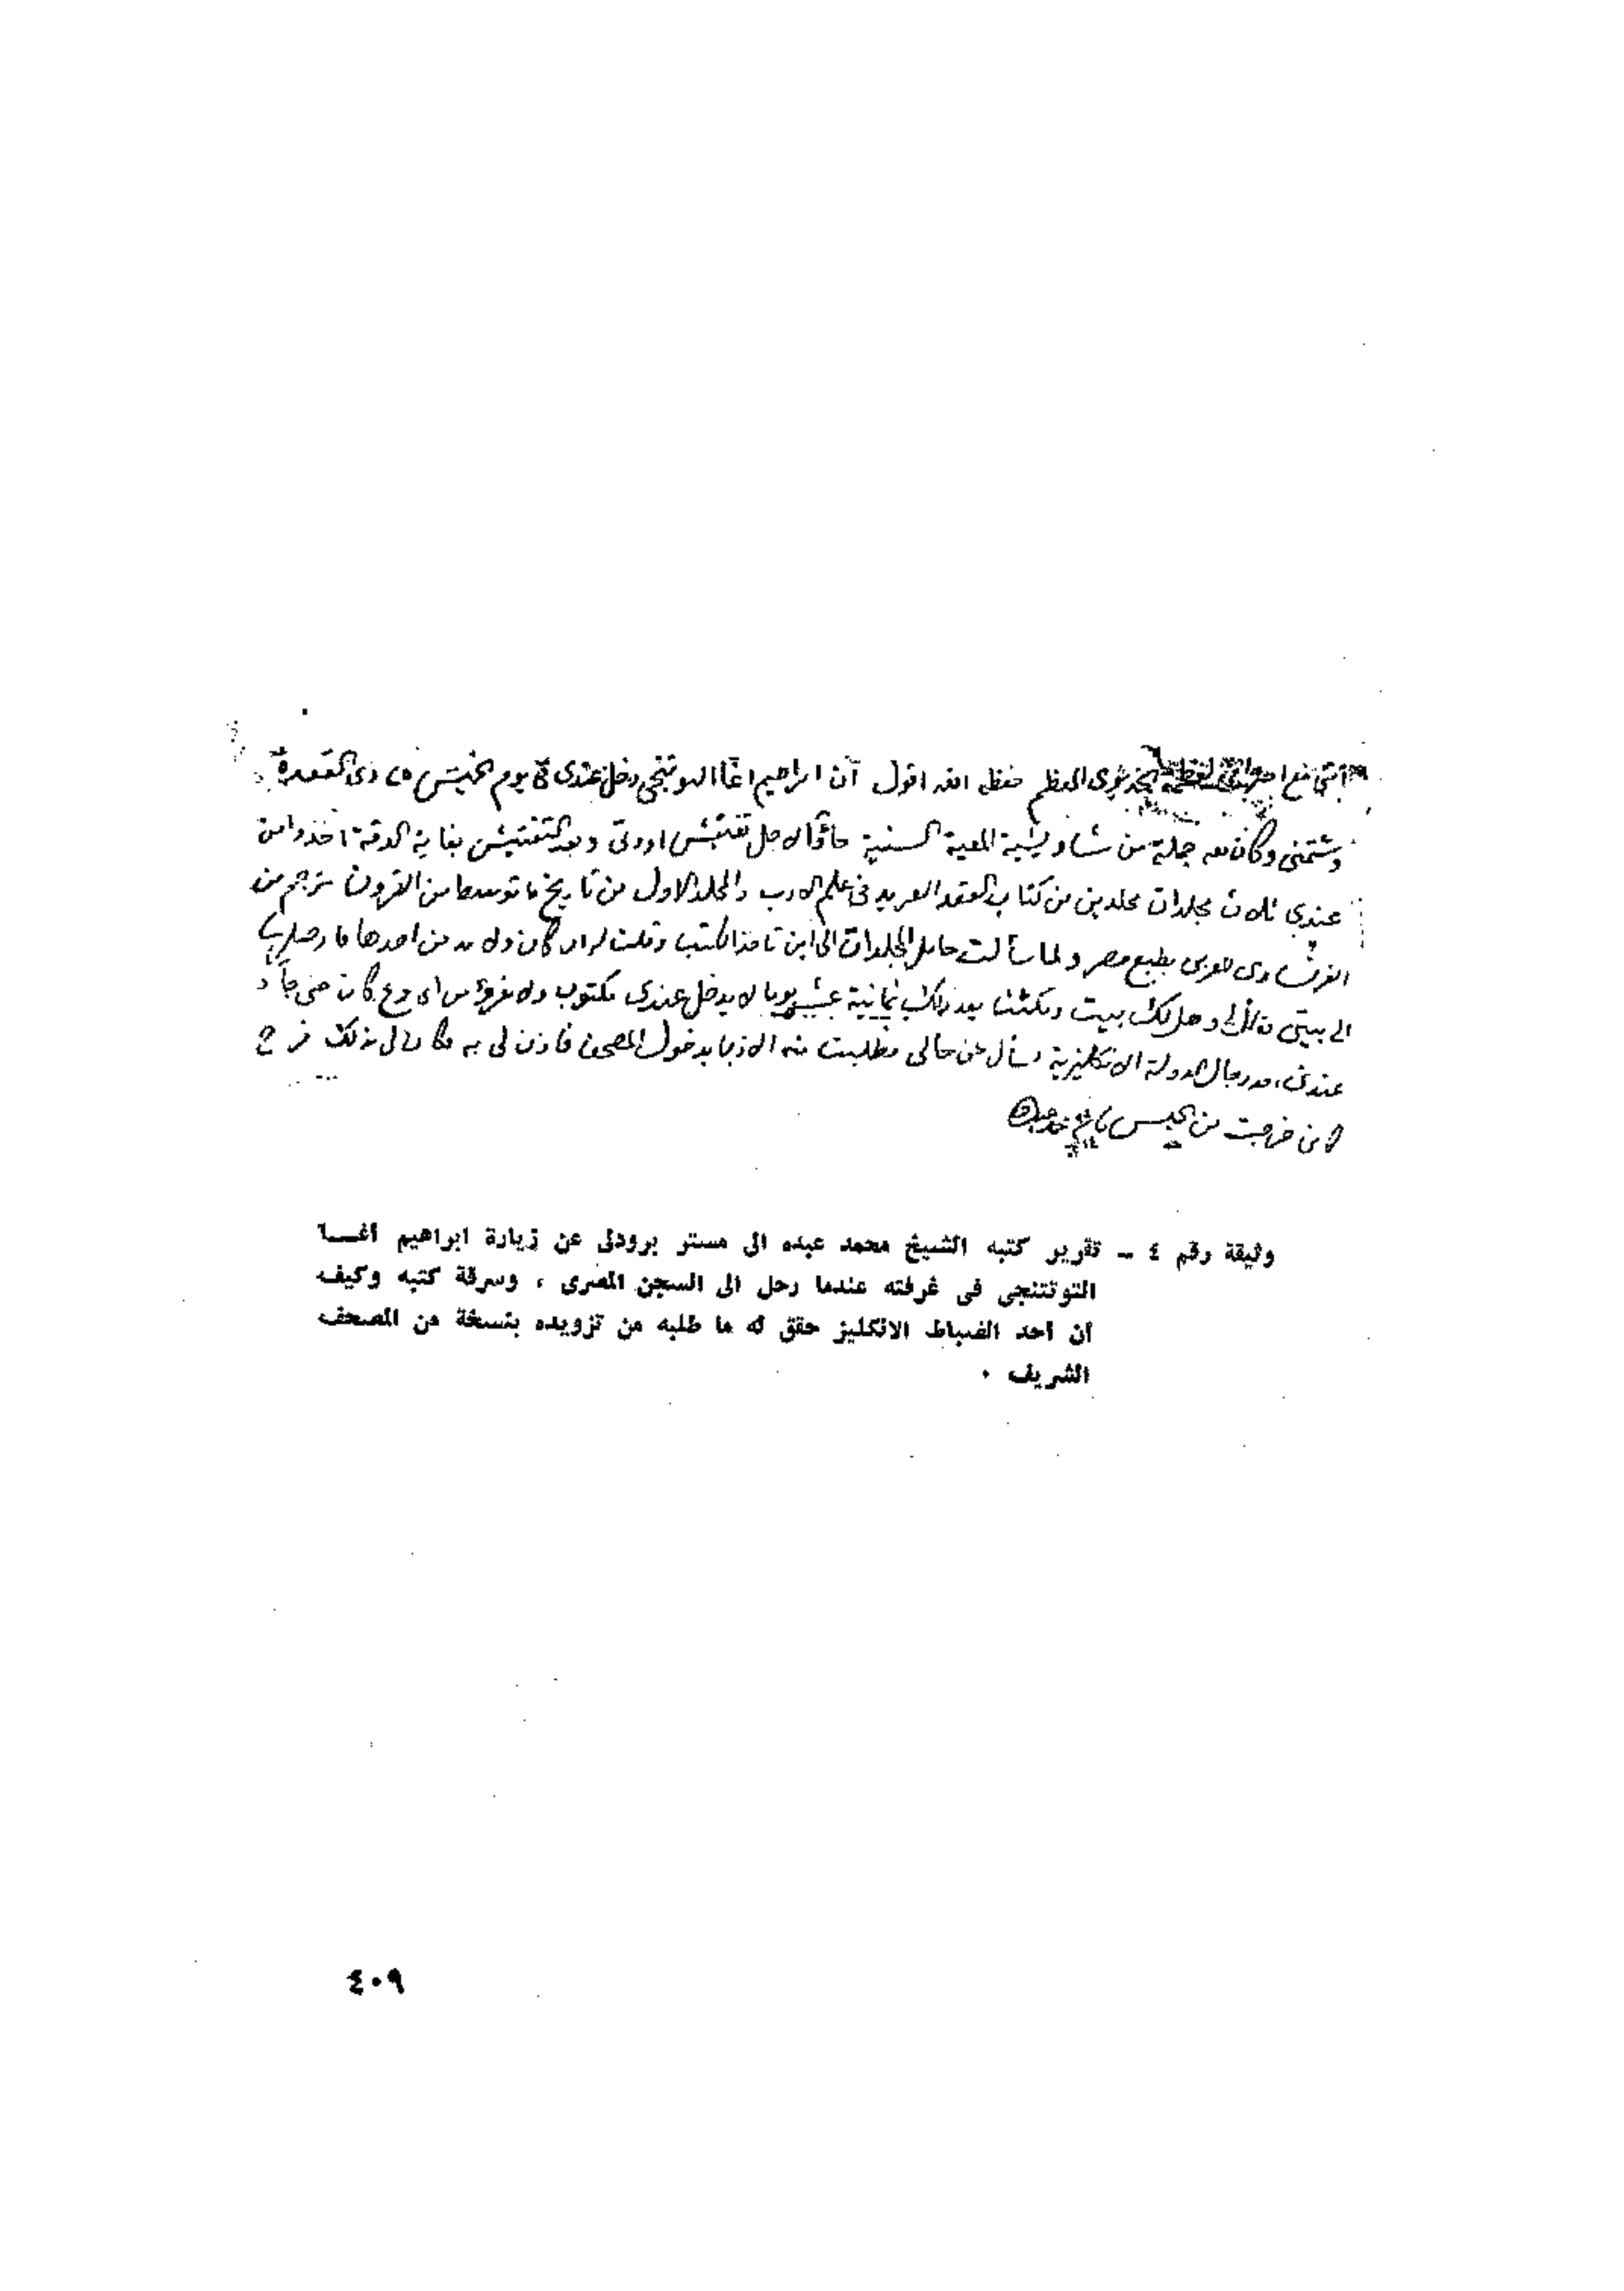 انني مع احترامي لعظمة الخديوى المعظم حفظه الله اقول أن ابراهيم اغا التوتنجي دخل عندى في يوم الخميس ذى القعدة
وشتمنى وكان معه جملة من شاويشية المعية السنية جاؤا لاجل تفتيش اودتى وبعد التفتيش بغاية الدقة اخذوا من
عندى ثلاث مجلدات مجلدين من كتاب العقد الفريد فى علم الادب والمجلد الاول من تاريخ ما توسط من القرون مترجم من
الفرنساوى للعربى بطبع مصر ولما سألت حامل المجلدات الى اين تأخذ الكتب وقلت له ان كان ولا بد من اخذها فارسلها
الى بيتى قال لى وهل لك بيت ومكثنا بعد ذلك ثمانية عشر يوما لا يدخل عندى مكتوب ولا مقروء من اى نوع كان حتى جاء
عندى احد رجال الدولة الانكليزية وسأل عن حالى فطلبت منه الاذن بدخول المصحف فاذن لى به
خرجت من الحبس محمد عبده
وثيقة رقم ٤ – تقرير كتبه الشيخ محمد عبده الى مستر برودلى عن زيارة ابراهيم أغـــا
التوتنجى فى غرفته عندما رحل الى السجن المصرى ، وسرقة كتبه وكيف
أن أحد الضباط الانكليز حقق له ما طلبه من تزويده بنسخة من المصحف
الشريف ٠
٤٠٩